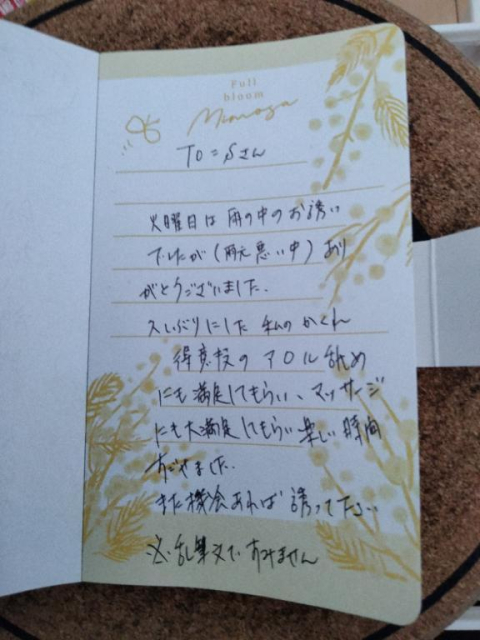 Full
bloom
Mimosa
TO=Sさん
火曜日は雨の中のお誘い
でしたが(足元悪い中)あり
がとうございました.
久しぶりにした私のかくれ
得意技のアロル舐め
にも満足してもらい、マッサージ
にも大満足してもらい楽しい時間
すごせました.
また機会あれば誘って下さい
乱筆文ですみません